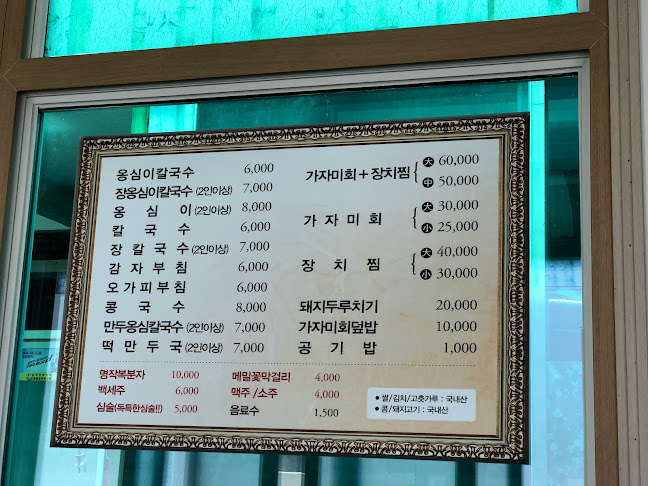 옹심이칼국수 6,000
장옹심이칼국수 (2인이상) 7,000
옹심이 (2인이상) 8,000
칼국수 6,000
장칼국수 (2인이상) 7,000
감자부침 6,000
오가피부침 6,000
콩국수 8,000
만두옹심칼국수 (2인이상) 7,000
떡만두국 (2인이상) 7,000
가자미회+장치찜 大 60,000
中 50,000
가자미회 大 30,000
小 25,000
장치찜 大 40,000
小 30,000
돼지두루치기 20,000
가자미회덮밥 10,000
공기밥 1,000
명작복분자 10,000
백세주 6,000
심술(독특한심술!!) 5,000
메밀꽃막걸리 4,000
맥주 / 소주 4,000
음료수 1,500
• 쌀/김치/고춧가루 : 국내산
• 콩/돼지고기 : 국내산